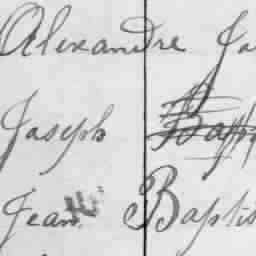 Alexandre Ja
Jaseph Bap
Jean Baptis